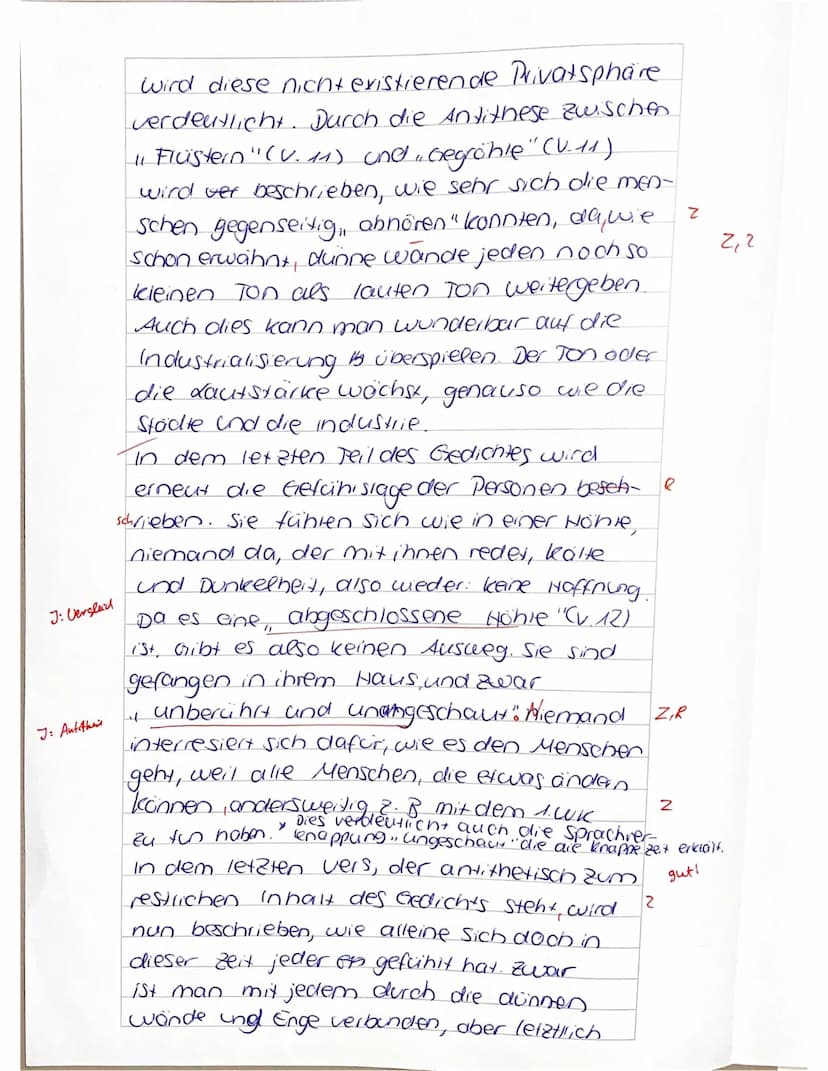 wird diese nicht existierende Privatsphäre
verdeutlicht. Durch die Antithese zwischen
„Flüstern" (V. 11) und „Gegröhle" (V. 11)
wird ver beschrieben, wie sehr sich die Men-
schen gegenseitig „abhören" konnten, da, wie Z
Z, Z
schon erwähnt, dünne Wände jeden noch so
kleinen Ton als lauten Ton weitergeben.
Auch dies kann man wunderbar auf die
Industrialisierung überspielen. Der Ton oder
die Lautstärke wächst, genauso wie die
Städte und die Industrie.
In dem letzten Teil des Gedichtes wird
erneut die Gefühlslage der Personen besch- R
schrieben. Sie fühlen sich wie in einer Höhle,
niemand da, der mit ihnen redet, Kälte
und Dunkelheit, also wieder: keine Hoffnung.
J: Vergleich Da es eine „abgeschlossene Höhle" (V. 12)
ist, gibt es also keinen Ausweg. Sie sind
gefangen in ihrem Haus, und zwar
„unberührt und unangeschaut". Niemand Z, R
J: Antithese
interresiert sich dafür, wie es den Menschen
geht, weil alle Menschen, die etwas ändern
können, andersweitig z. B mit dem 1. WK Z
zu tun haben. * Dies verdeutlicht auch die Sprachver-
knappung „ungeschaut" die die knappe Zeit erklärt.
In dem letzten Vers, der antithetisch zum gut!
restlichen Inhalt des Gedichts steht, wird Z
nun beschrieben, wie alleine sich doch in
dieser Zeit jeder gefühlt hat. Zwar
ist man mit jedem durch die dünnen
Wände und Enge verbunden, aber letztlich